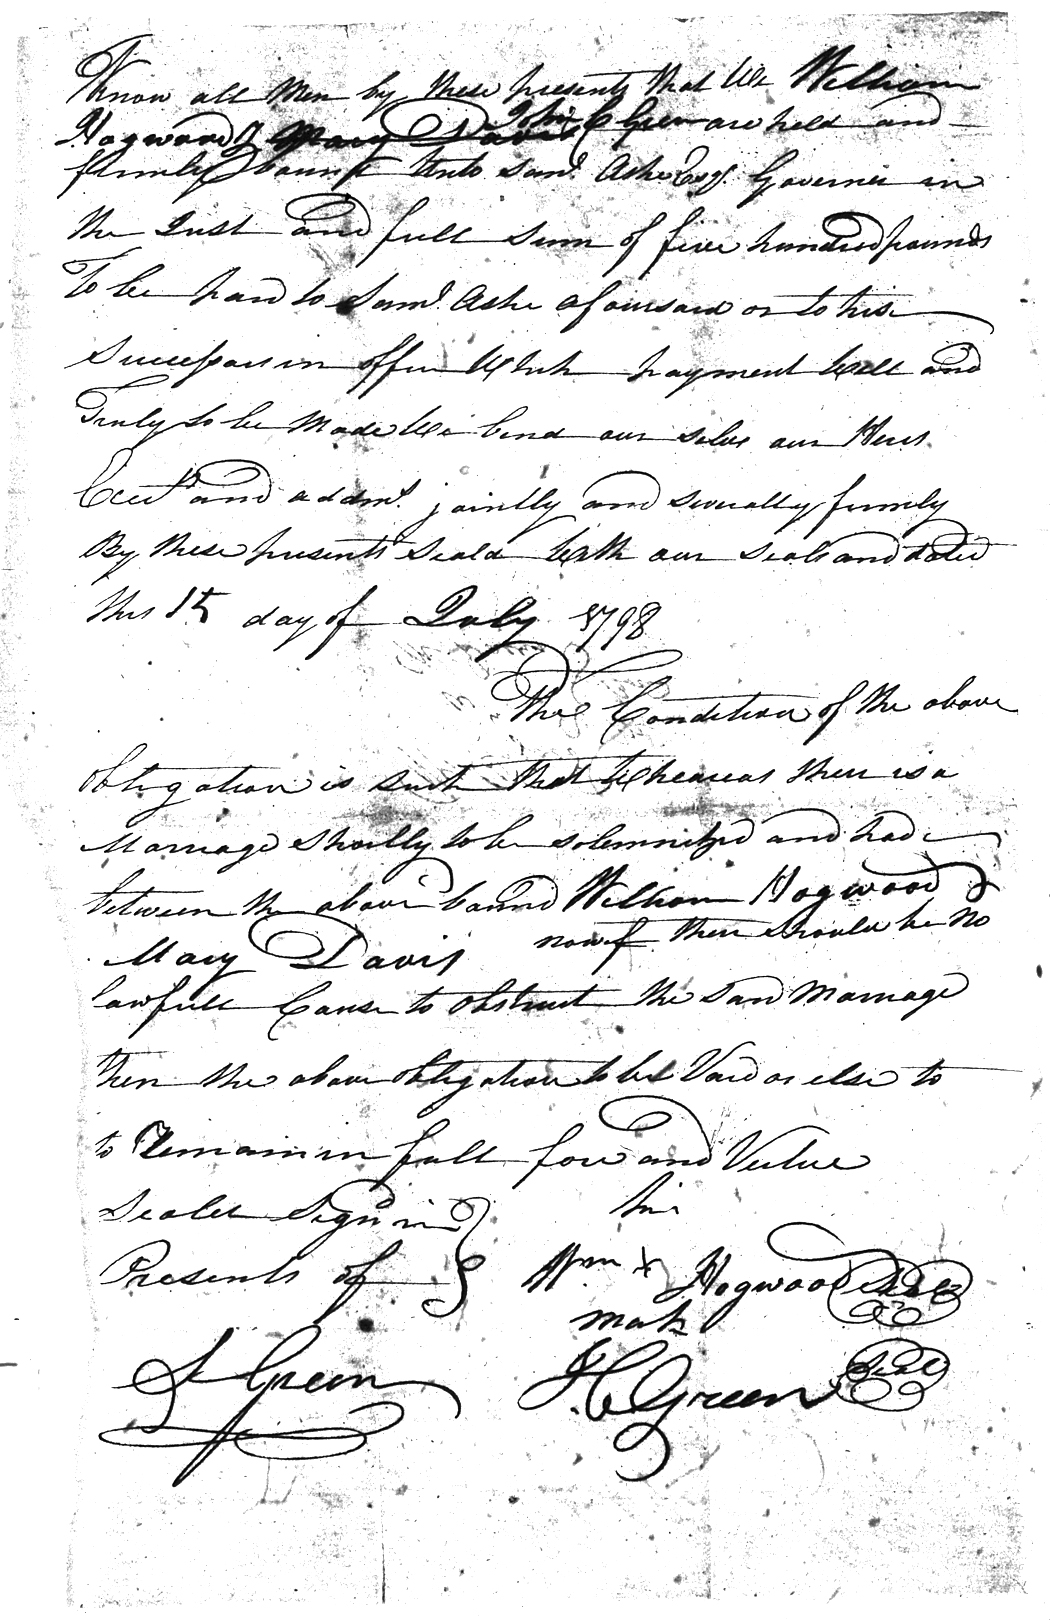 Know all Men by these presents that We William
Hogwood & Mary Davis John C Green are held and
firmly bound unto Sam.l Ashe Esq.r Governer in
the Just and full Sum of five hundred pounds
To be paid to Sam.l Ashe aforesaid or to his
Successors in office Which payment Well and
Truly to be Made We bend our selve our Heirs
Excut.rs and addm.s jointly and severally firmly
By these presents Seald With our Seals and dated
this 1st day of July 1798
The Condition of the above
obligation is such that Wheareas there is a
Marriage Shortly to be solemnized and had
between the above bound William Hogwood &
Mary Davis now if there should be no
lawfull Cause to obstruct the said Marriage
then the above obligation to be Void or else to
to Remain in full force and Virtue
Sealed Sign'd in
Presents of
his
Wm x Hogwood Seal
mark
J C Green Seal
S Green